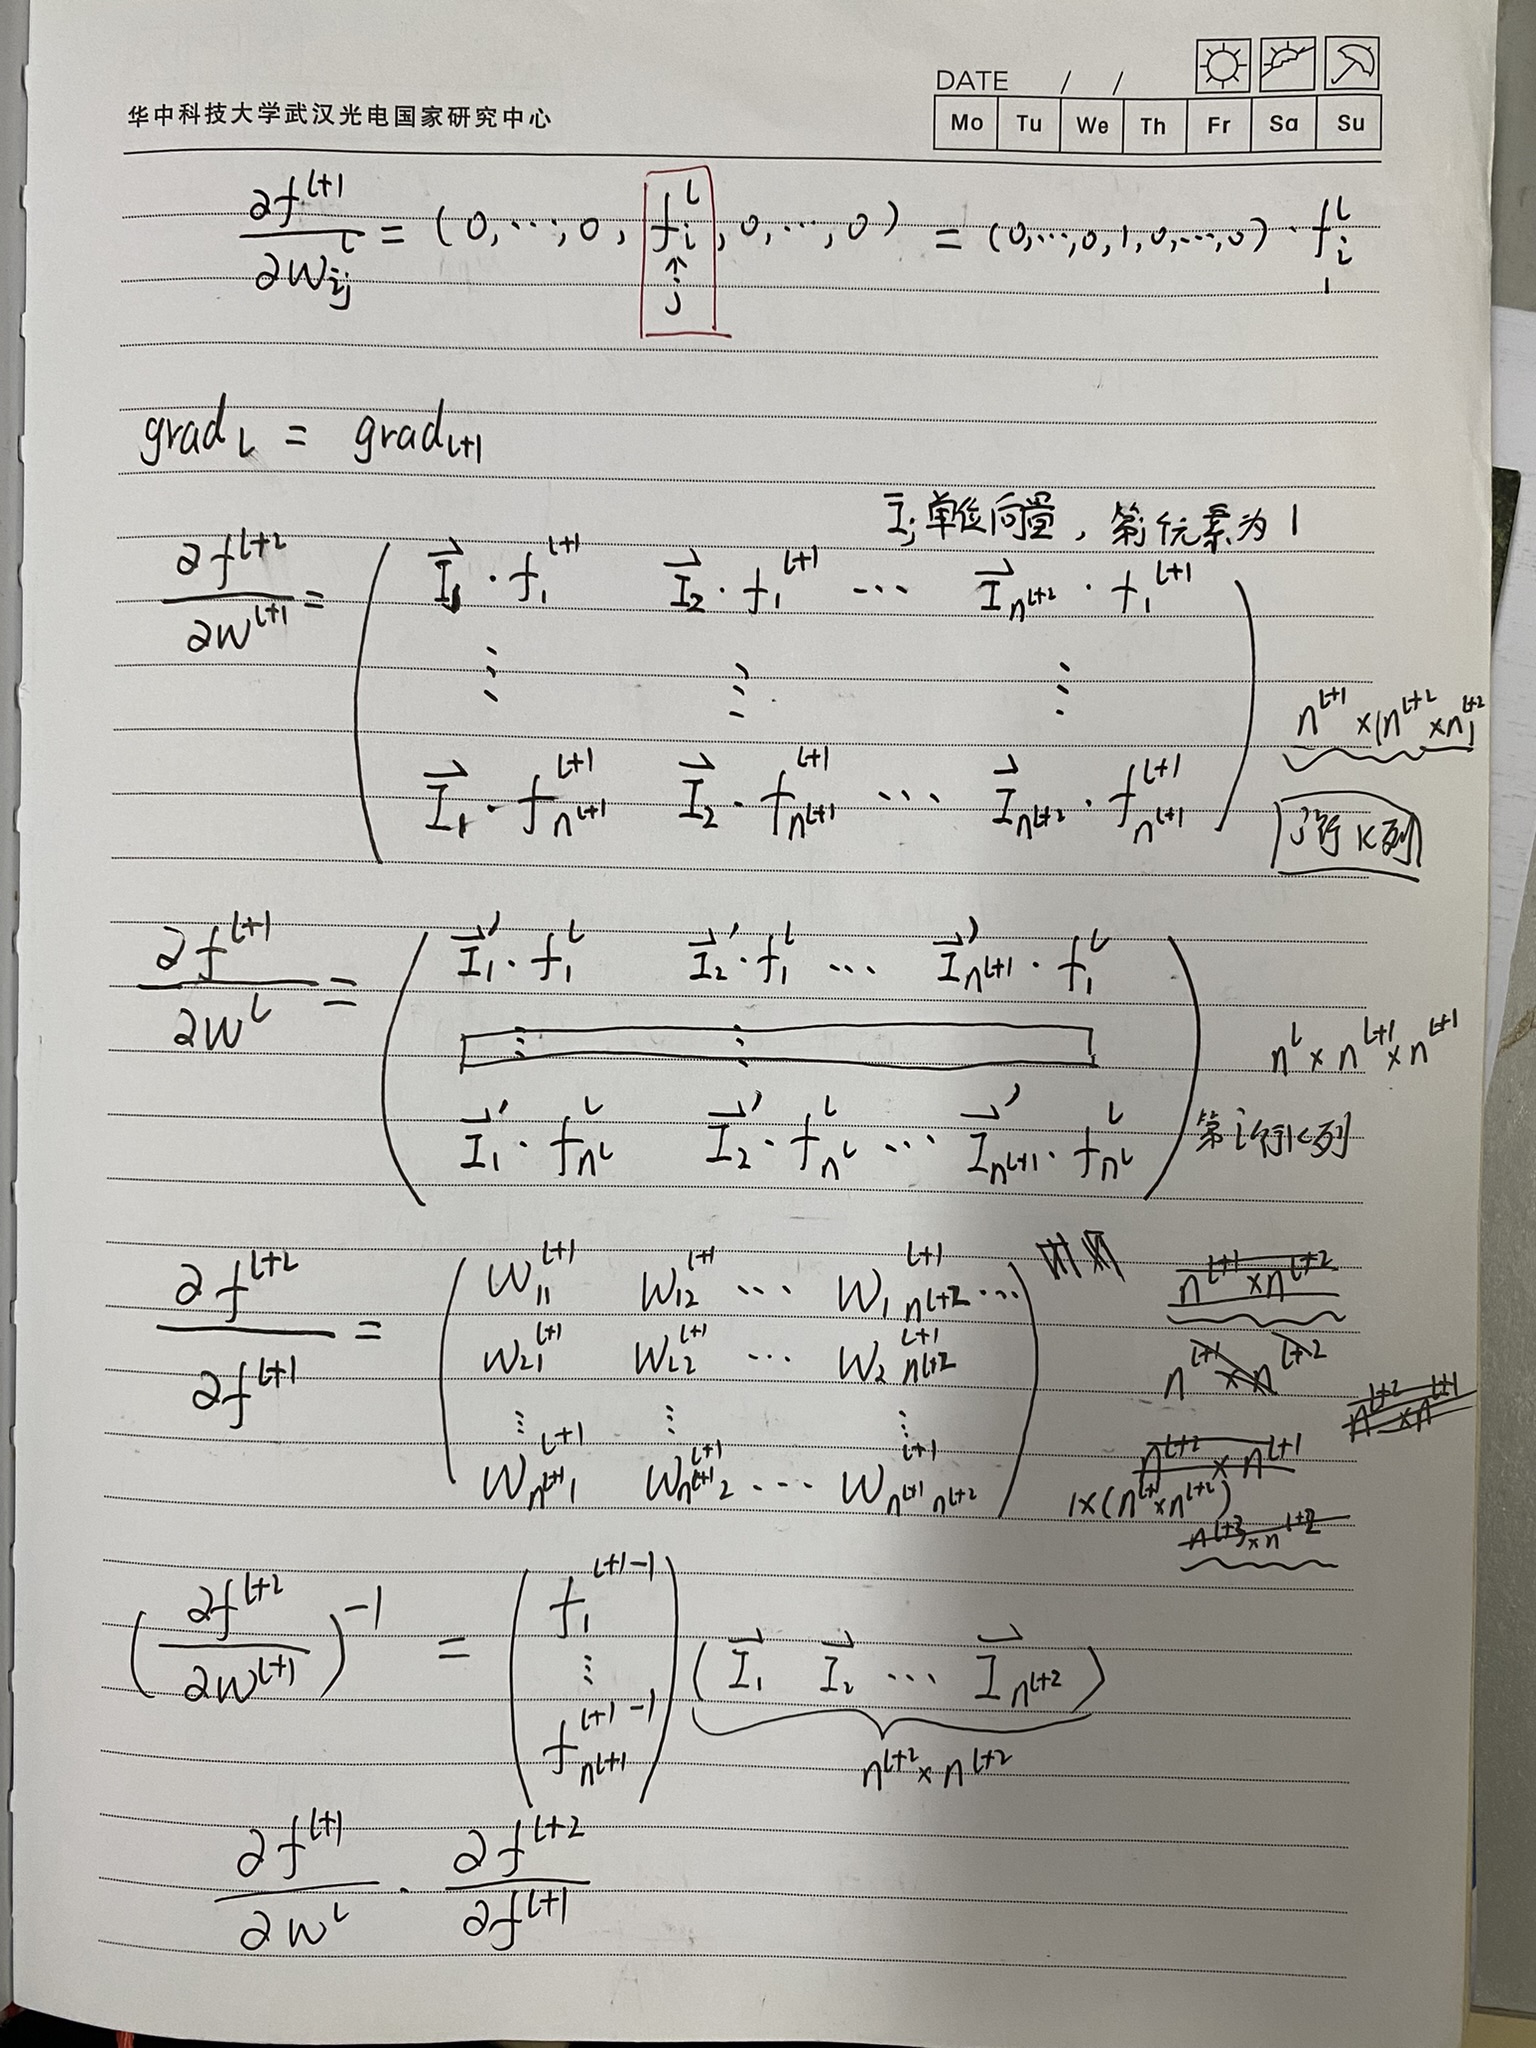 DATE / /
华中科技大学武汉光电国家研究中心
Mo Tu We Th Fr Sa Su
∂f^{l+1}/∂w_{ij}^l = (0,⋯,0, f_i^l, 0,⋯,0) = (0,⋯,0,1,0,⋯,0)·f_i^l
↑
j
grad_l = grad_{l+1}
I_j 单位向量,第j个元素为1
∂f^{l+2}/∂w^{l+1} = ( I⃗_1·f_1^{l+1} I⃗_2·f_1^{l+1} ⋯ I⃗_{n^{l+2}}·f_1^{l+1}
⋮ ⋮ ⋮
n^{l+1}×(n^{l+2}×n^{l+2})
I⃗_1·f_{n^{l+1}}^{l+1} I⃗_2·f_{n^{l+1}}^{l+1} ⋯ I⃗_{n^{l+2}}·f_{n^{l+1}}^{l+1} )
j行k列
∂f^{l+1}/∂w^l = ( I⃗_1'·f_1^l I⃗_2'·f_1^l ⋯ I⃗_{n^{l+1}}'·f_1^l
⋮ ⋮
n^l×n^{l+1}×n^{l+1}
I⃗_1'·f_{n^l}^l I⃗_2'·f_{n^l}^l ⋯ I⃗_{n^{l+1}}'·f_{n^l}^l )
第i行k列
∂f^{l+2}/∂f^{l+1} = ( w_{11}^{l+1} w_{12}^{l+1} ⋯ w_{1 n^{l+2}}^{l+1} ⋯
n^{l+1}×n^{l+2}
w_{21}^{l+1} w_{22}^{l+1} ⋯ w_{2 n^{l+2}}^{l+1}
n^{l+1}×n^{l+2}
n^{l+2}×n^{l+1}
⋮ ⋮ ⋮
n^{l+2}×n^{l+1}
w_{n^{l+1}1}^{l+1} w_{n^{l+1}2}^{l+1} ⋯ w_{n^{l+1}n^{l+2}}^{l+1} )
1×(n^{l+1}×n^{l+2})
(∂f^{l+2}/∂w^{l+1})^{-1} = ( f_1^{l+1-1} ⋮ f_{n^{l+1}}^{l+1-1} ) ( I⃗_1 I⃗_2 ⋯ I⃗_{n^{l+2}} )
n^{l+2}×n^{l+2}
∂f^{l+1}/∂w^l · ∂f^{l+2}/∂f^{l+1}